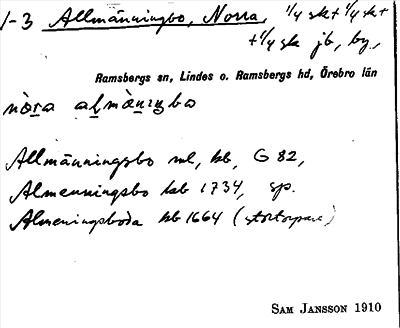 1-3 Allmänningbo, Norra, 1/4 sk + 1/4 sk +
+ 1/4 sk jb, by,
Ramsbergs sn, Lindes o. Ramsbergs hd, Örebro län
Allmänningsbo ml, kb, G 82,
Almenningsbo 1734, sp.
Almeningsboda kb 1664 (
SAM JANSSON 1910